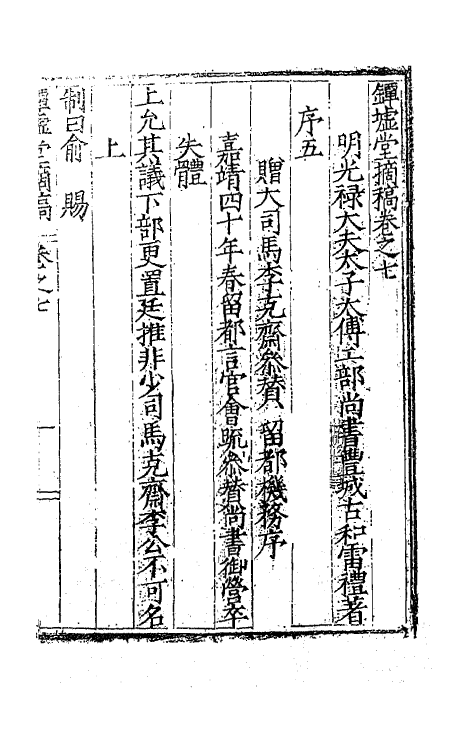 鐔墟堂摘稿卷之七
明光禄大夫太子太傅工部尚書豐城古和雷禮著
序五
贈大司馬李克齋叅賛留都機務序
嘉靖四十年春留都言官會疏叅賛尚書御營卒
失體
上允其議下部更置廷推非少司馬克齋李公不可名
上
制曰俞賜
鐔墟堂摘稿 卷之七 一